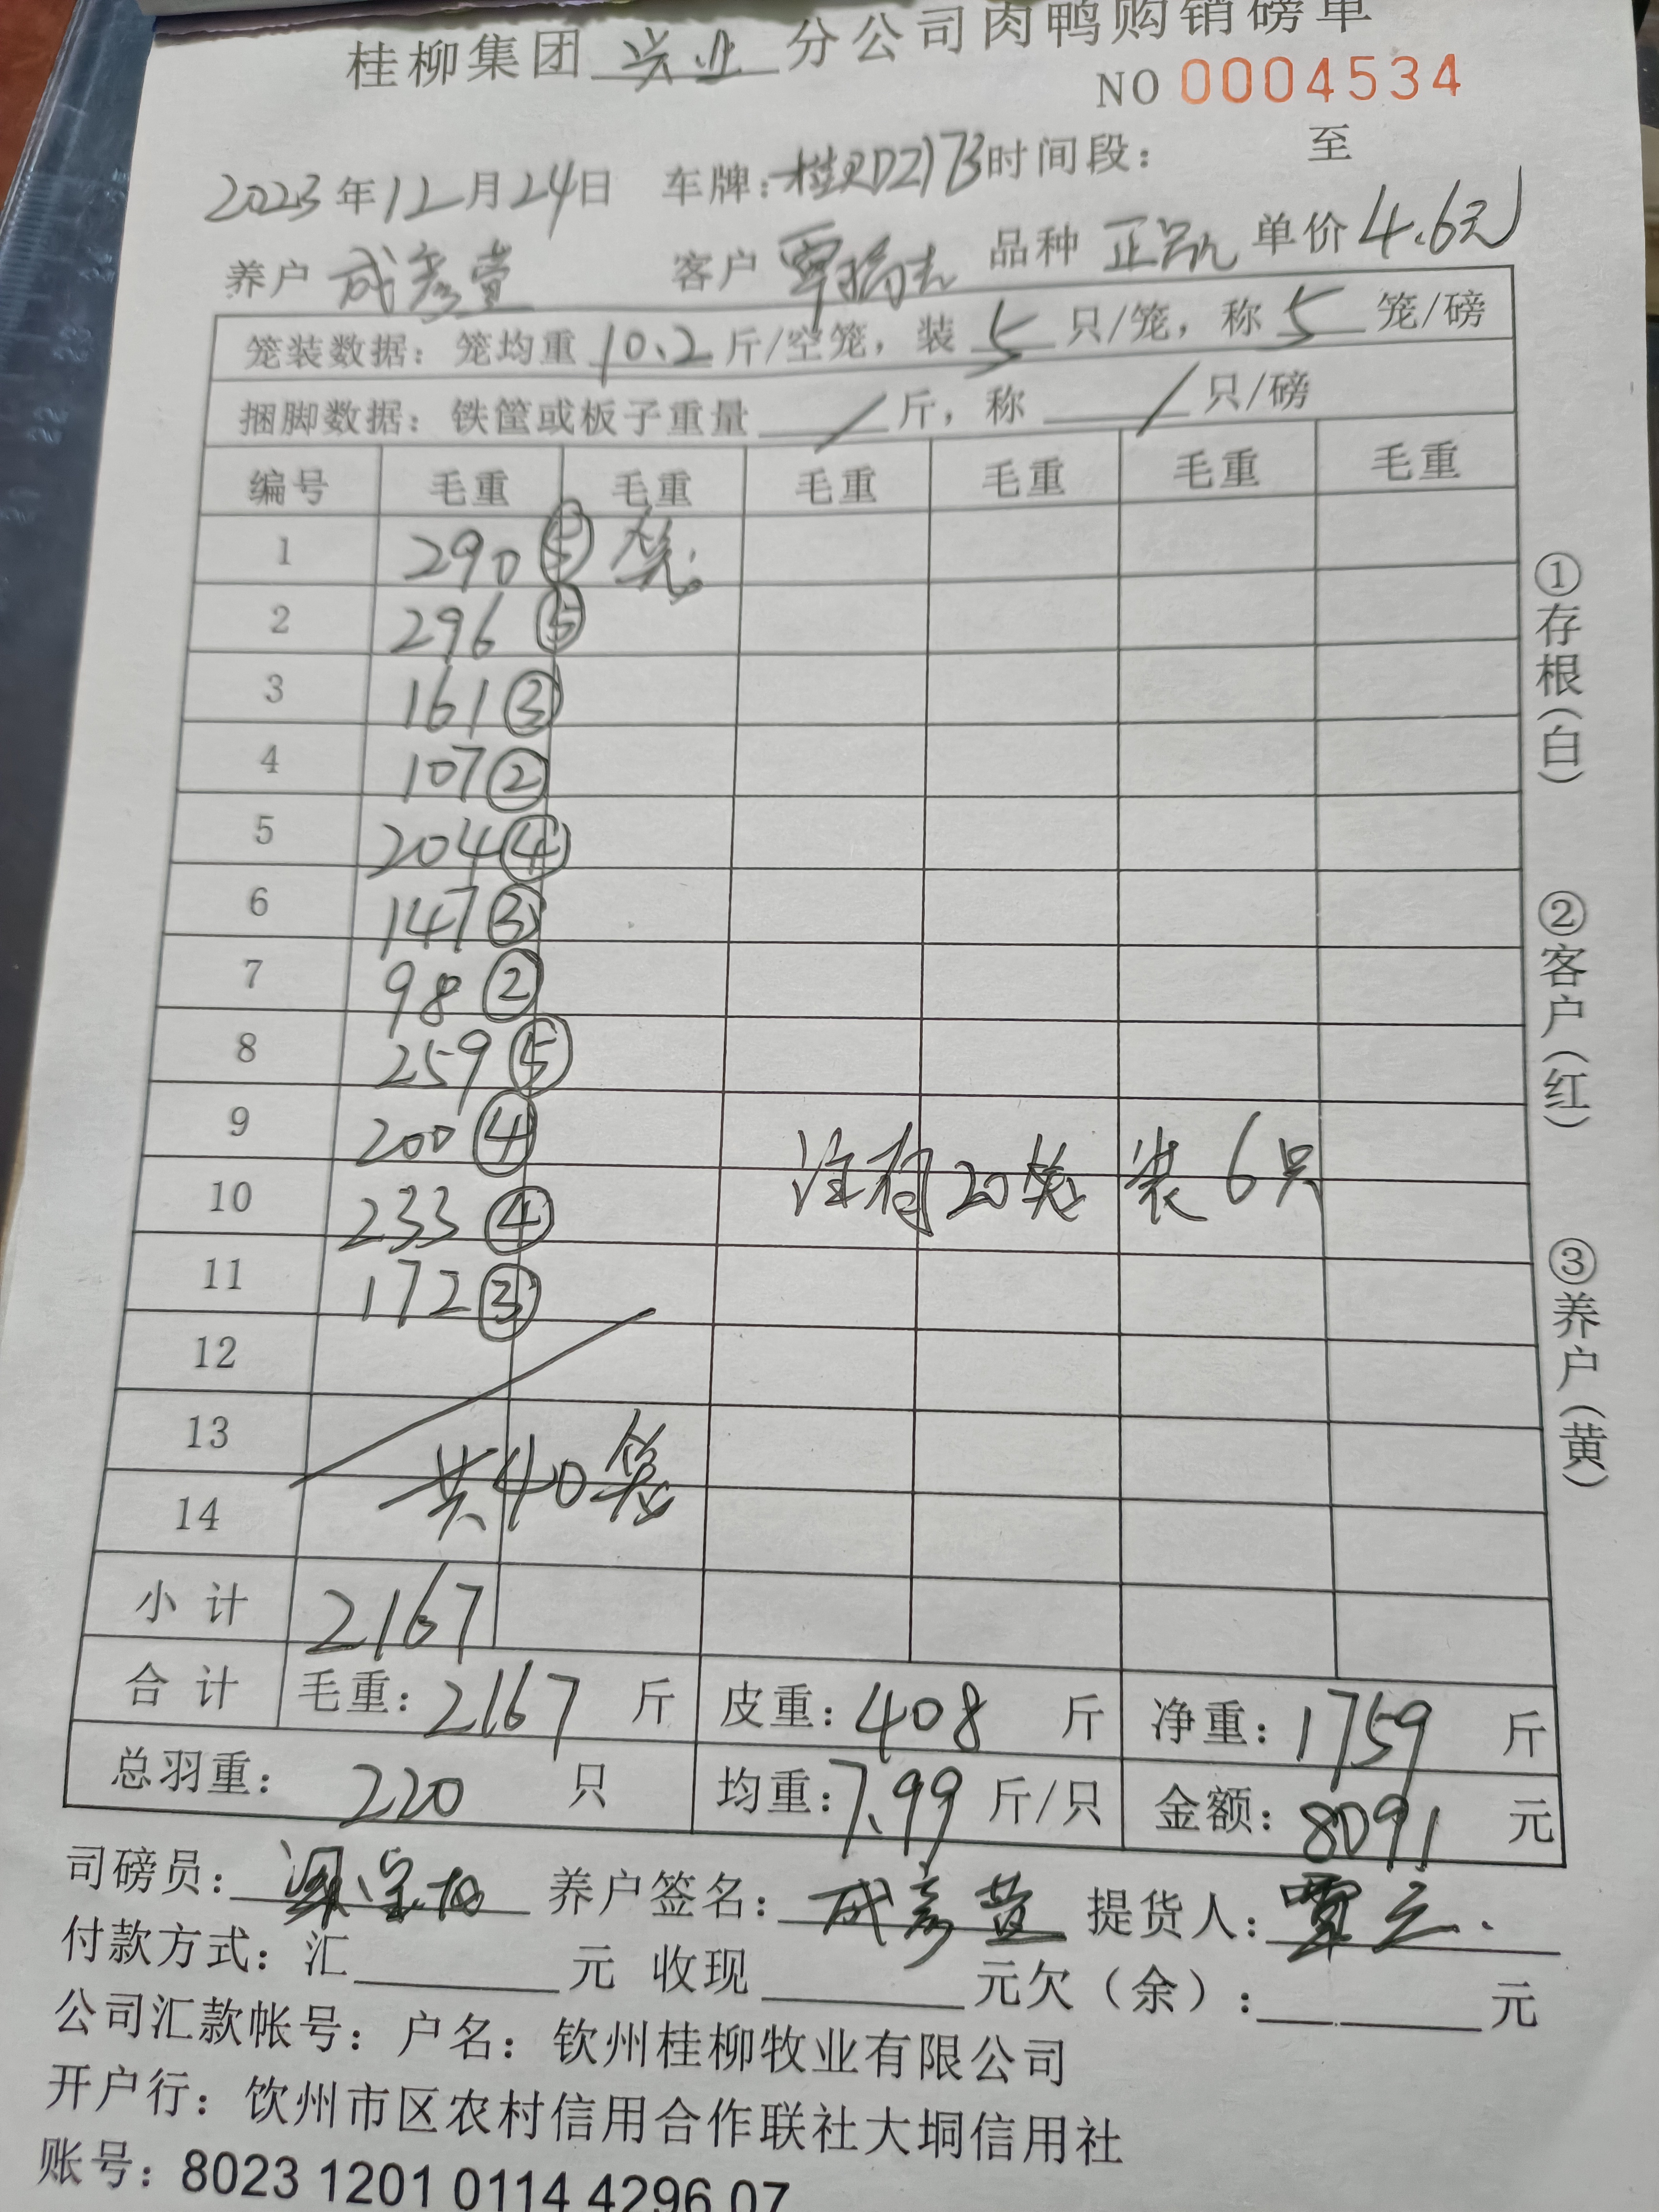 桂柳集团 兴业 分公司肉鸭购销磅单
NO 0004534
2023年12月24日 车牌:桂RD2173 时间段: 至
养户 成彦萱 客户 覃 品种 正凯 单价 4.6元
笼装数据: 笼均重 10.2 斤/空笼, 装 5 只/笼, 称 5 笼/磅
捆脚数据: 铁筐或板子重量 / 斤, 称 / 只/磅
编号 毛重 毛重 毛重 毛重 毛重 毛重
1 290 ⑤ 笼
2 296 ⑤
3 161 ③
4 107 ②
5 204 ④
6 147 ③
7 98 ②
8 259 ⑤
9 200 ④
注有20笼 装6只
10 233 ④
11 172 ③
12
13
共40笼
14
小计 2167
合计 毛重: 2167 斤 皮重: 408 斤 净重: 1759 斤
总羽重: 220 只 均重: 7.99 斤/只 金额: 8091 元
司磅员: 养户签名: 成彦萱 提货人: 覃
付款方式: 汇 元 收现 元欠(余): 元
公司汇款帐号: 户名: 钦州桂柳牧业有限公司
开户行: 钦州市区农村信用合作联社大垌信用社
账号: 8023 1201 0114 4296 07
①存根(白)
②客户(红)
③养户(黄)